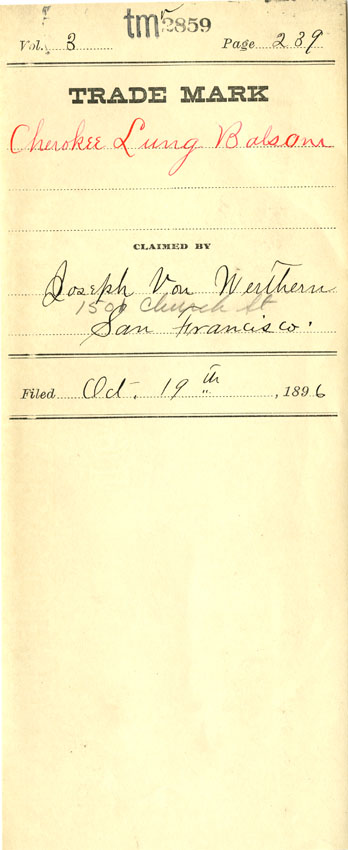 tm 2859
Vol. 3 Page 239
TRADE MARK
Cherokee Lung Balsam
CLAIMED BY
Joseph Von Werthern
Church St
San Francisco.
Filed Oct. 19th, 1896